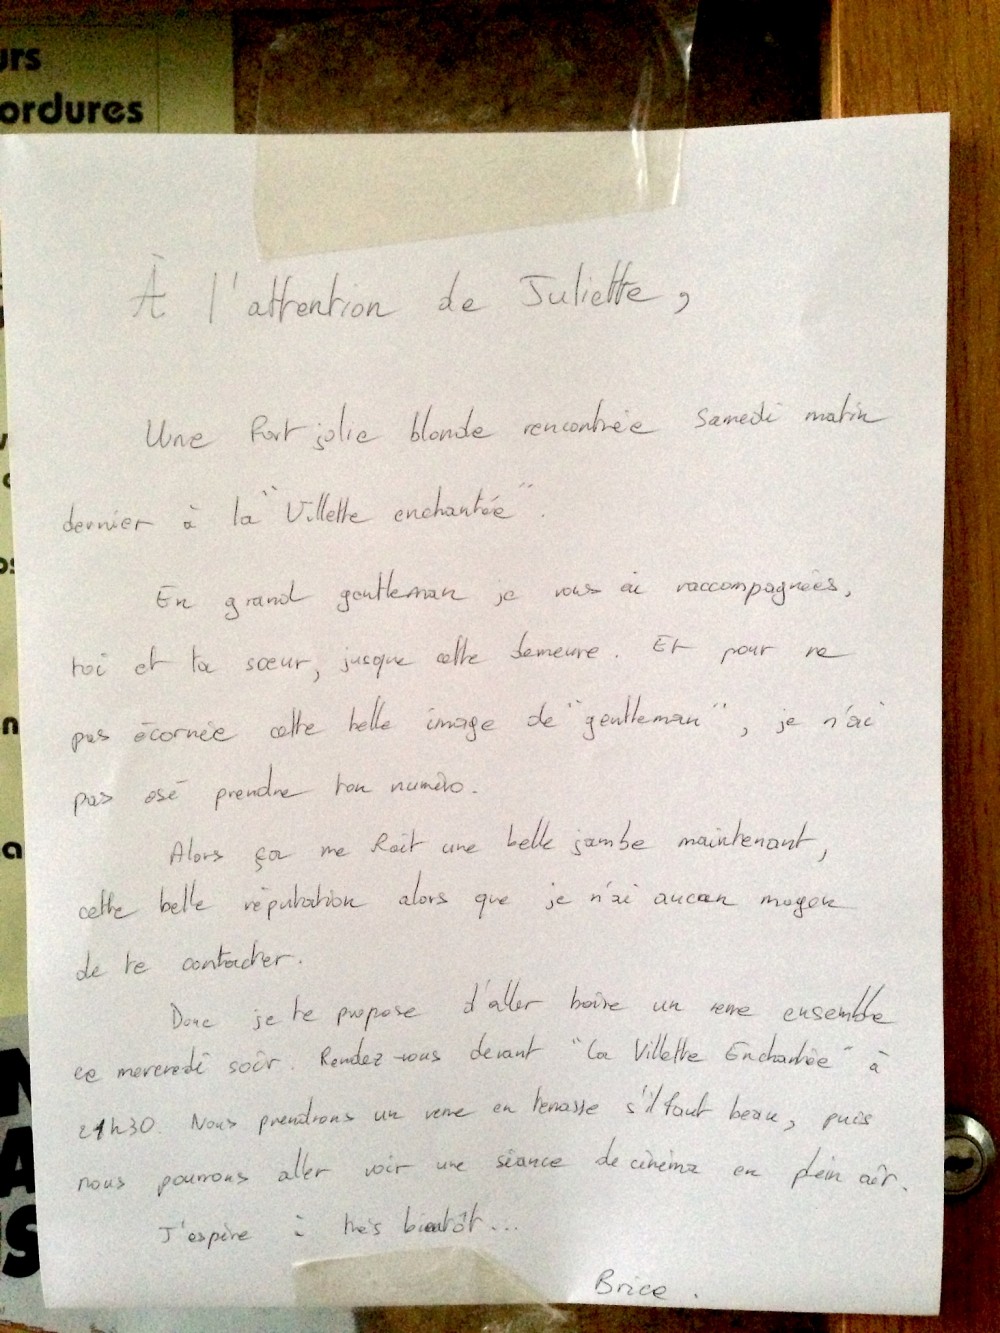 urs
ordures
À l'attention de Juliette,
Une fort jolie blonde rencontrée Samedi matin
dernier à la "Villette enchantée".
En grand gentleman je vous ai raccompagnées,
toi et ta sœur, jusque cette demeure. Et pour ne
pas écornée cette belle image de "gentleman", je n'ai
pas osé prendre ton numéro.
Alors ça me fait une belle jambe maintenant,
cette belle réputation alors que je n'ai aucun moyen
de te contacter.
Donc je te propose d'aller boire un verre ensemble
ce mercredi soir. Rendez-vous devant "La Villette Enchantée" à
21h30. Nous prendrons un verre en terrasse s'il faut beau, puis
nous pourrons aller voir une séance de cinéma en plein air.
J'espère à très bientôt...
Brice.